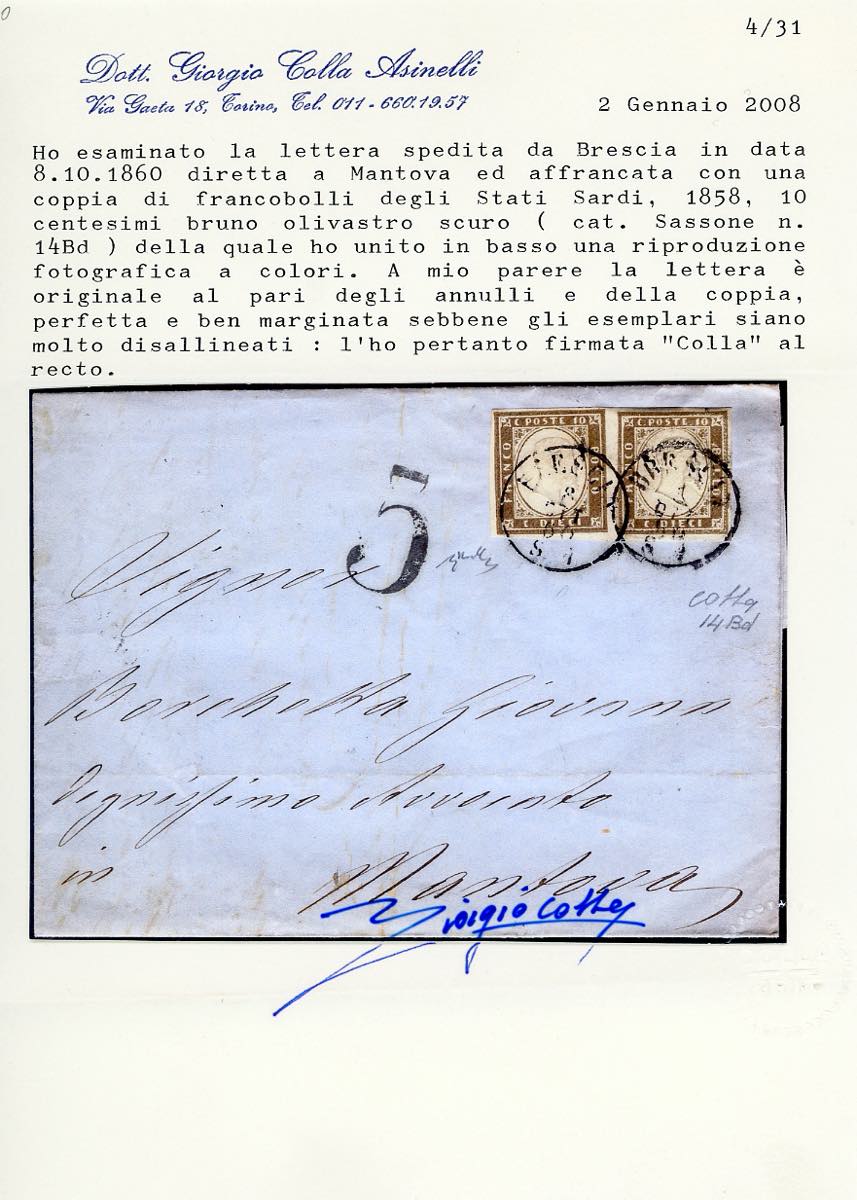 4/31
Dott. Giorgio Colla Asinelli
Via Gaeta 18, Torino, Tel. 011-660.19.57
2 Gennaio 2008
Ho esaminato la lettera spedita da Brescia in data
8.10.1860 diretta a Mantova ed affrancata con una
coppia di francobolli degli Stati Sardi, 1858, 10
centesimi bruno olivastro scuro ( cat. Sassone n.
14Bd ) della quale ho unito in basso una riproduzione
fotografica a colori. A mio parere la lettera è
originale al pari degli annulli e della coppia,
perfetta e ben marginata sebbene gli esemplari siano
molto disallineati : l'ho pertanto firmata "Colla" al
recto.
C. POSTE 10 C. POSTE 10
FRANCO BOLLO
C. DIECI C. DIECI
BRESCIA
5
Colla
14Bd
Signor
Borchetta Giovanni
Degnissimo Avvocato
in Mantova
Giorgio Colla